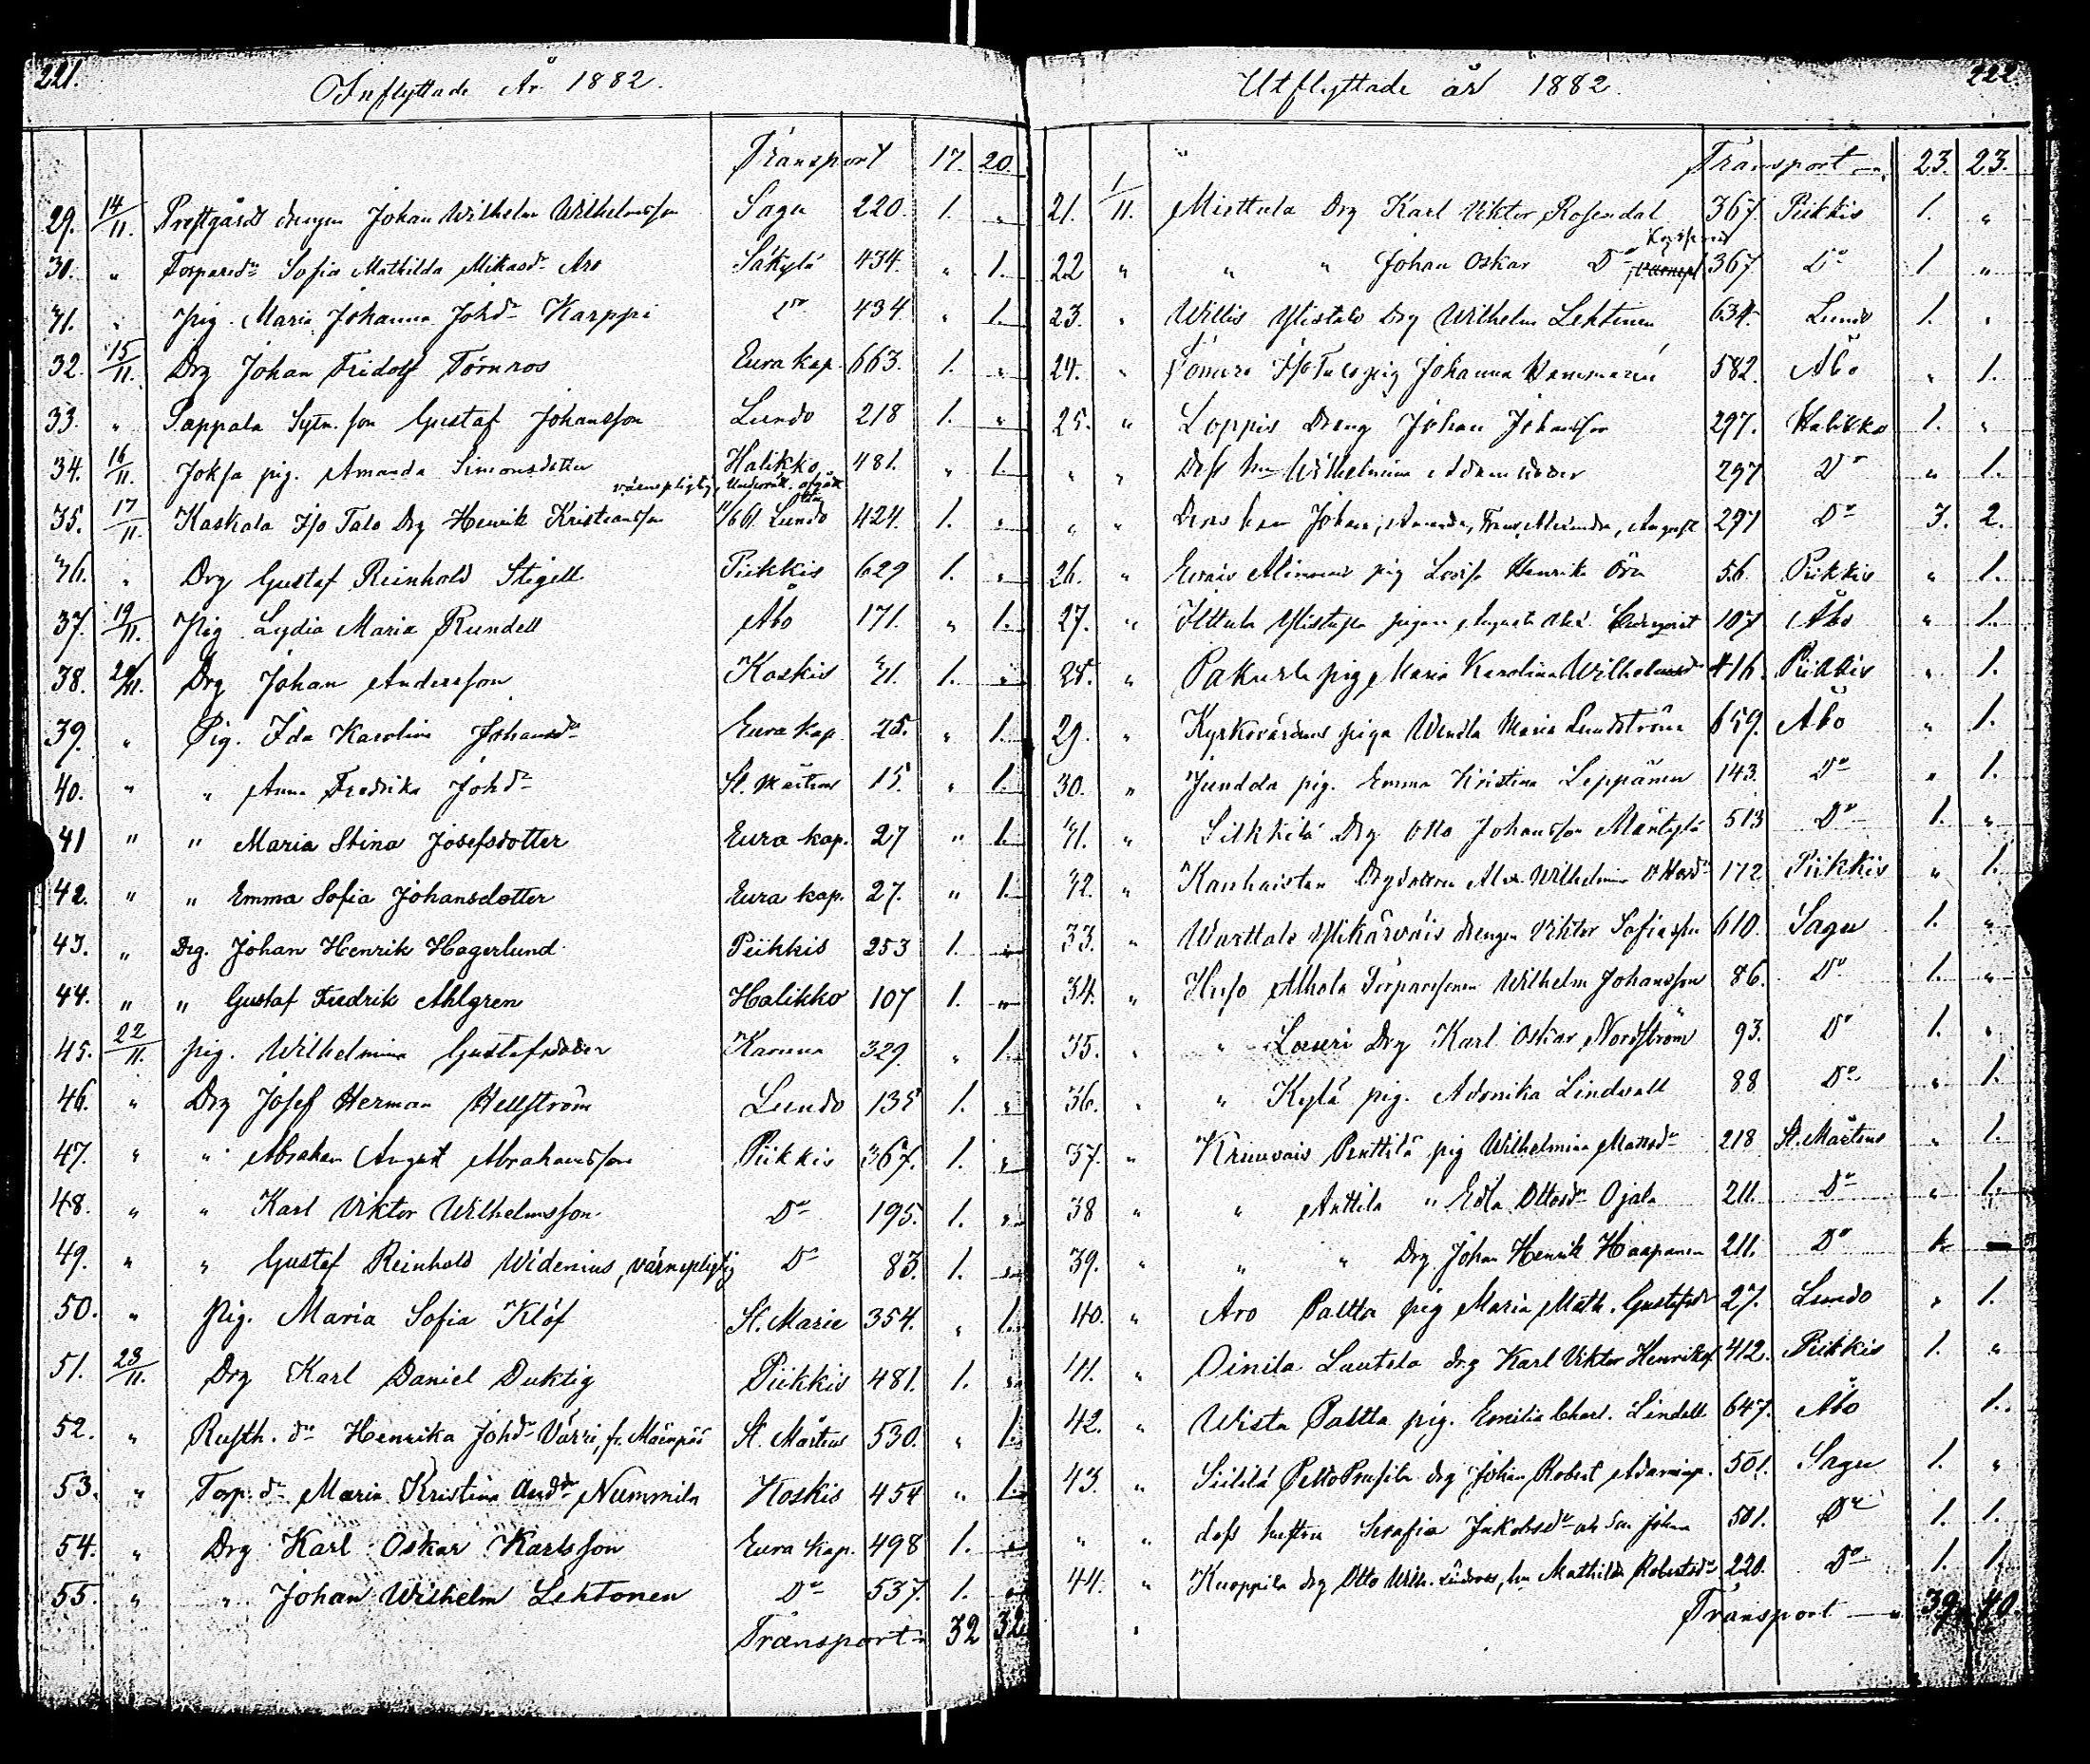 221.
Inflyttade År 1882.
Transport 17. 20.
29. 14/11. Prestgårds drengen Johan Wilhelm Wilhelmsson Sagu 220. 1. "
30. " Torpared:r Sofia Mathilda Mikaelsd:r Aro Säkylä 434. " 1.
31. " Pig. Maria Johanna Johd:r Karppi D:o 434 " 1.
32. 15/11. Drg Johan Fridolf Törnros Eura kap. 663. 1. "
33. " Pappala Sytn. son Gustaf Johansson Lundo 218 1. "
34. 16/11. Joksa pig. Amanda Simonsdotter Halikko 481. " 1.
35. 17/11. Kaskala Iso Talo Drg Henrik Kristiansson värnepligtig, Lundo 424. 1. "
36. " Drg Gustaf Reinhold Stigell Piikkis 629 1. "
37. 19/11. Pig Lydia Maria Rundell Åbo 171. " 1.
38. 20/11. Drg Johan Andersson Koskis 31. 1. "
39. " Pig. Ida Karolina Johansd:r Eura kap. 25. " 1.
40. " " Anna Fredrika Johd:r St. Mårtens 15. " 1.
41 " " Maria Stina Josefsdotter Eura kap. 27 " 1.
42. " " Emma Sofia Johansdotter Eura kap. 27. " 1.
43. " Drg. Johan Henrik Hagerlund Piikkis 253 1. "
44. " " Gustaf Fredrik Ahlgren Halikko 107 1. "
45. 22/11. pig. Wilhelmina Gustafsdoter Karuna 329. " 1.
46. " Drg Josef Herman Hellström Lundo 135 1. "
47. " " Abraham August Abrahamsson Piikkis 367. 1. "
48. " " Karl Viktor Wilhelmsson D:o 195. 1. "
49. " " Gustaf Reinhold Widenius, värnepligtig D:o 83. 1. "
50. " Pig. Maria Sofia Klöf St. Marie 354. " 1.
51. 23/11. Drg Karl Daniel Duktig Piikkis 481. 1. "
52. " Rusth. d:r Henrika Johd:r Värri, fr. Mäenpää St. Mårtens 530. " 1.
53. " Torp. d:r Maria Kristina Andd:r Nummila Koskis 454 " 1.
54. " Drg Karl Oskar Karlsson Eura kap. 498 1. "
55. " " Johan Wilhelm Lehtonen D:o 537. 1. "
Transport 32 32
222.
Utflyttade år 1882.
Transport 23. 23.
21. 1/11. Miettula Drg Karl Viktor Rosendal 367. Piikkis 1. "
22 " " " Johan Oskar D:o 367 D:o 1 "
23. " Willis Ylistalo Drg Wilhelm Lehtinen 634. Lundo 1. "
24. " Iso Talo pig Johanna 582. Åbo " 1.
25. " Loppis Dreng Johan Johansson 297. Halikko 1. "
" " Dess hu Wilhelmina 297 D:o " 1.
" " Deras barn Johan, Amanda, Frans, Alexandra, August 297 D:o 3. 2.
26. " pig Lovisa Henrika Örn 56 Piikkis " 1.
27. " Ylistupa pigan Augusta 107 Åbo " 1.
28. " Pakurla pig Maria Karolina Wilhelmsd:r 416. Piikkis " 1.
29. " Kyrkovärdens piga Wendla Maria Lundström 659. Åbo " 1.
30. " Jundola pig. Emma Kristina Leppänen 143. D:o " 1.
31. " Silkkilä Drg Otto Johansson Mäntylä 513 D:o 1. "
32. " Kanhaisten Drgdottern Alex. Wilhelmina Ottosd:r 172 Piikkis " 1.
33. " Warttala Ylikärväis drengen Viktor Sofiasson 610. Sagu 1. "
34. " Huso Alhola Torparesonen Wilhelm Johansson 86. D:o 1. "
35. " " Lauri Drg Karl Oskar Nordström 93. D:o 1. "
36. " " Kylä pig. Adonika Lindvall 88 D:o " 1.
37. " Kruuvais Penttilä pig Wilhelmina Mattsd:r 218 St. Mårtens " 1.
38 " " Anttila " Edla Ottosd:r Ojala 211. D:o " 1.
39. " " " Drg Johan Henrik Haapanen 211. D:o 1. "
40. " Aro Paltta pig Maria Math. Gustafsd:r 27. Lundo " 1.
41. " Oinila Luutela drg Karl Viktor Henriks 412. Piikkis 1. "
42. " Wista Paltta pig. Emilia Charl. Lindell 647. Åbo 1.
43. " Siililä drg Johan Robert 501. Sagu 1. "
" " dess hustru Serafia Jakobsd:r och son Johan 501. D:o 1. 1.
44. " Kuoppila drg Otto Wilh. hu Mathilda Robertsd:r 220. D:o 1. 1.
Transport 39. 40.